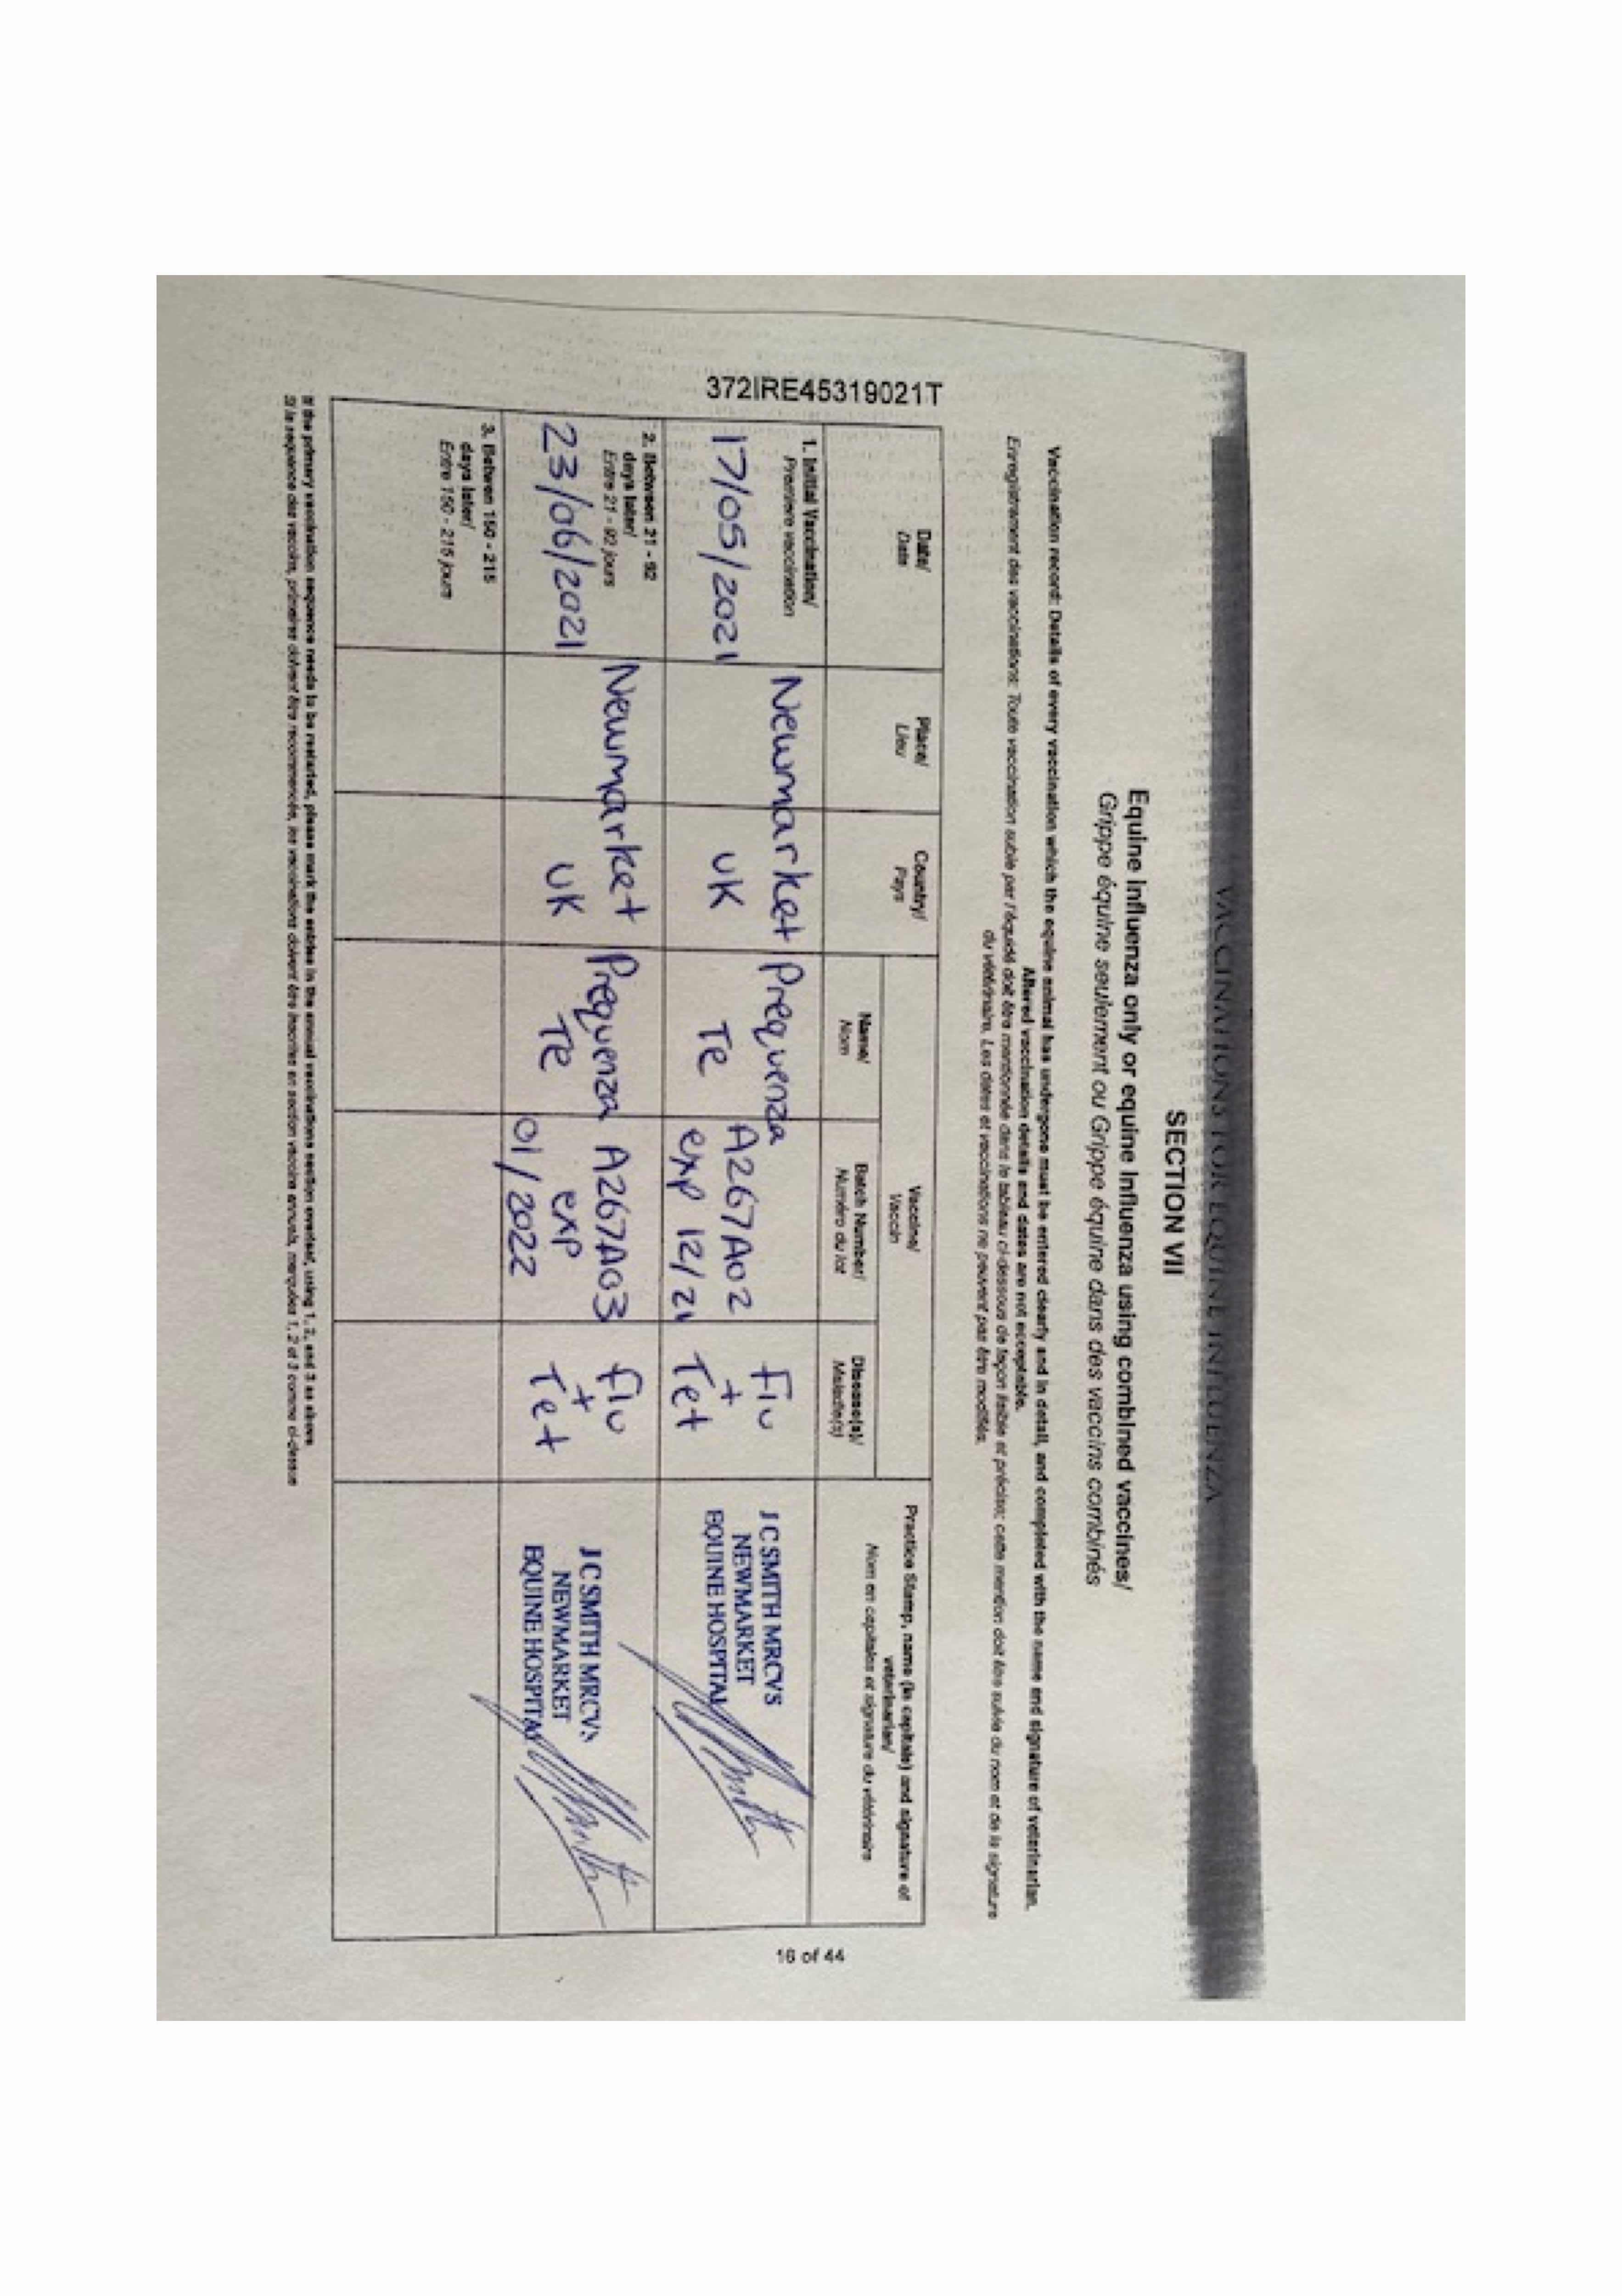 VACCINATIONS FOR EQUINE INFLUENZA
SECTION VII
Equine Influenza only or equine influenza using combined vaccines/
Grippe équine seulement ou Grippe équine dans des vaccins combinés
Vaccination record: Details of every vaccination which the equine animal has undergone must be entered clearly and in detail, and completed with the name and signature of veterinarian.
Altered vaccination details and dates are not acceptable.
Enregistrement des vaccinations: Toute vaccination subie par l'équidé doit être mentionnée dans le tableau ci-dessous de façon lisible et précise; cette mention doit être suivie du nom et de la signature
du vétérinaire. Les dates et vaccinations ne peuvent pas être modifiés.
372IRE45319021T
Date/
Date
Place/
Lieu
Country/
Pays
Vaccine/
Vaccin
Name/
Nom
Batch Number/
Numéro du lot
Disease(s)/
Maladie(s)
Practice Stamp, name (in capitals) and signature of
veterinarian/
Nom en capitales et signature du vétérinaire
1. Initial Vaccination/
Premiere vaccination
17/05/2021
Newmarket
UK
Prequenza
Te
A267A02
exp 12/21
Flu
+
Tet
J C SMITH MRCVS
NEWMARKET
EQUINE HOSPITAL
2. Between 21 - 92
days later/
Entre 21 - 92 jours
23/06/2021
Newmarket
UK
Prequenza
Te
A267A03
exp
01/2022
flu
+
Tet
J C SMITH MRCVS
NEWMARKET
EQUINE HOSPITAL
3. Betwen 150 - 215
days later/
Entre 150 - 215 jours
If the primary vaccination sequence needs to be restarted, please mark the entries in the annual vaccinations section overleaf, using 1, 2, and 3 as above
Si la sequence des vaccins primaires doivent être recommencés, les vaccinations doivent être inscrites en section vaccins annuels, marquées 1, 2 et 3 comme ci-dessus
16 of 44